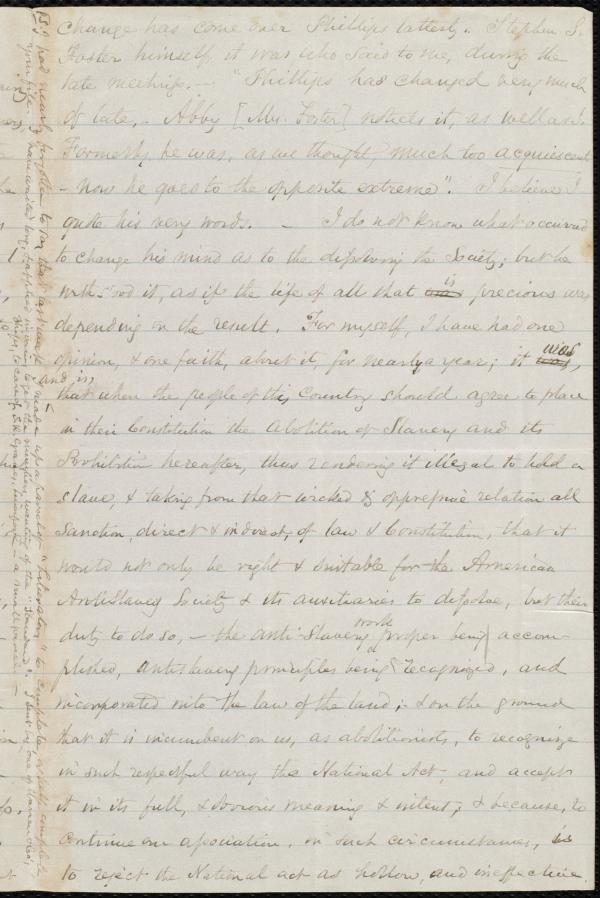 change has come over Phillips latterly. Stephen S.
Foster himself it was who said to me, during the
late meetings.— "Phillips has changed very much
of late,— Abby [Mrs. Foster] notices it, as well as I.
Formerly he was, as we thought, much too acquiescent
– now he goes to the opposite extreme". I believe I
quote his very words. — I do not know what occurred
to change his mind as to the dissolving the Society; but he
withstood it, as if the life of all that is precious was
depending on the result. For myself, I have had one
opinion, & one faith, about it, for nearly a year; it was,
and is,
that when the people of this Country should agree to place
in their Constitution the Abolition of Slavery and its
Prohibition hereafter, thus rendering it illegal to hold a
slave, & taking from that wicked & oppressive relation all
Sanction, direct & indirect, of law & Constitution, that it
would not only be right & suitable for the American
AntiSlavery Society & its auxiliaries to dissolve, but their
duty to do so, – the anti-Slavery work proper being accom-
plished, anti-slavery principles being recognized, and
incorporated into the law of the land; – & on the ground
that it is incumbent on us, as abolitionists, to recognize
in such respectful way the National Act, and accept
it in its full, & obvious meaning & intent; & because, to
continue our association, in such circumstances, is
to reject the National act as hollow, and ineffective
P.S. I had nearly forgotten to say that last week I made up a parcel of "Liberators" to complete as well
your file. I have waited long